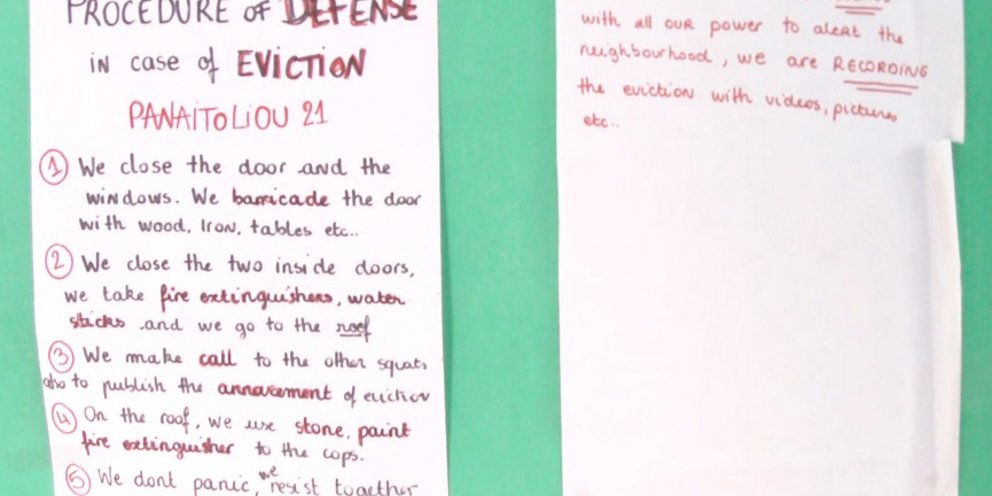 PROCEDURE of DEFENSE
in case of EVICTION
PANAITOLIOU 21
1 We close the door and the
windows. We barricade the door
with wood, Iron, tables etc..
2 We close the two inside doors,
we take fire extinguishers, water
sticks and we go to the roof
3 We make call to the other squats
also to publish the annoucement of eviction
4 On the roof, we use stone, paint
fire extinguisher to the cops.
5 We dont panic, we resist together
with all our power to alert the
neighbourhood, we are RECORDING
the eviction with videos, pictures
etc..